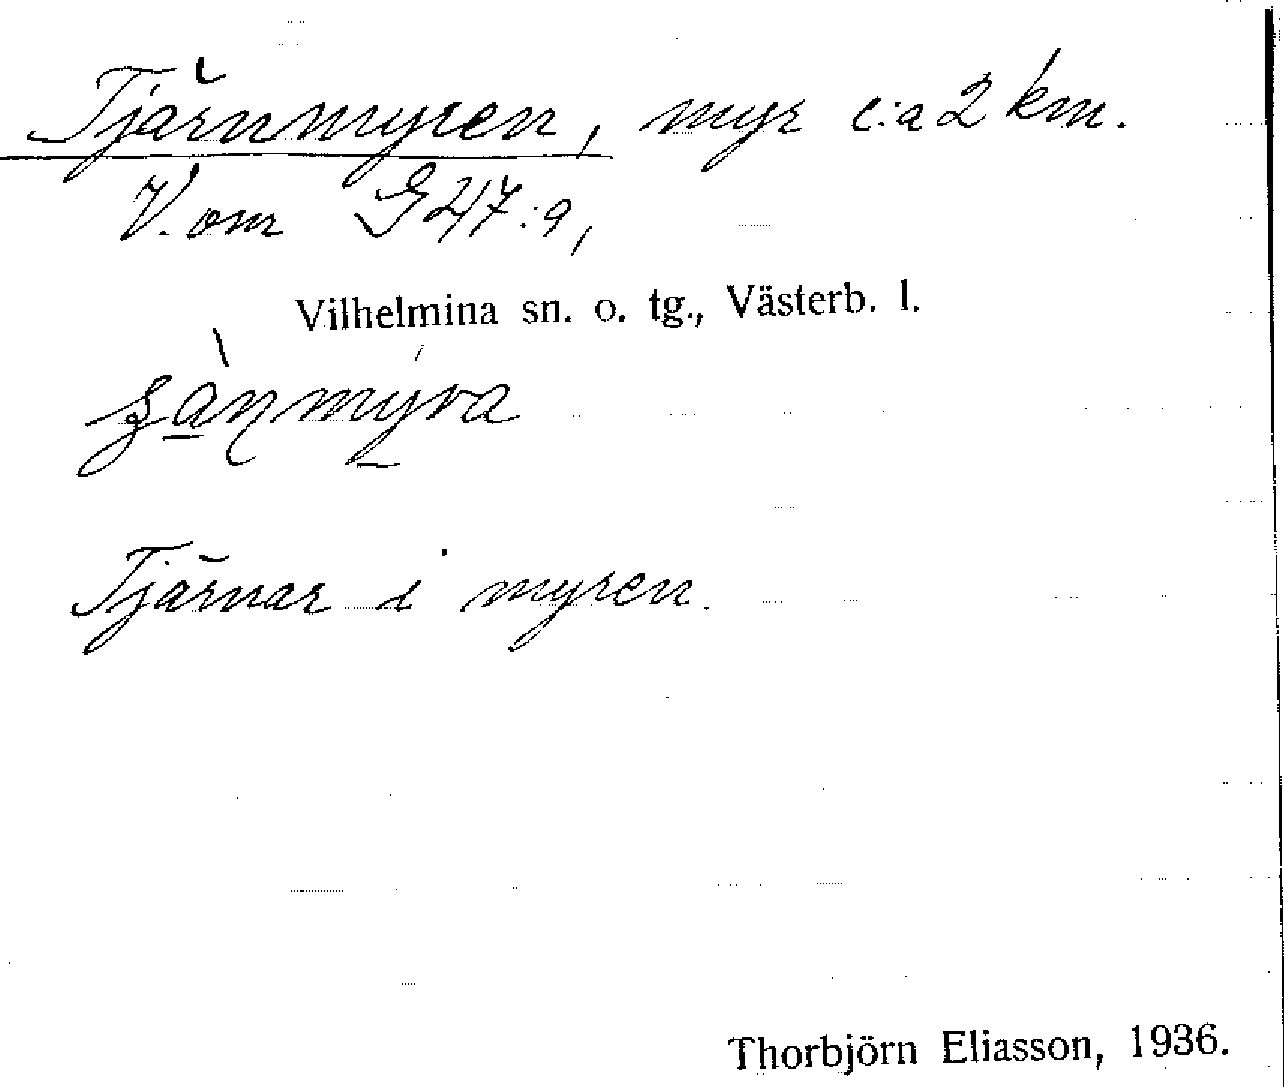 Tjärnmyren, myr c:a 2 km.
V. om G 47:9,
Vilhelmina sn. o. tg., Västerb. l.
Tjärnar i myren.
Thorbjörn Eliasson, 1936.